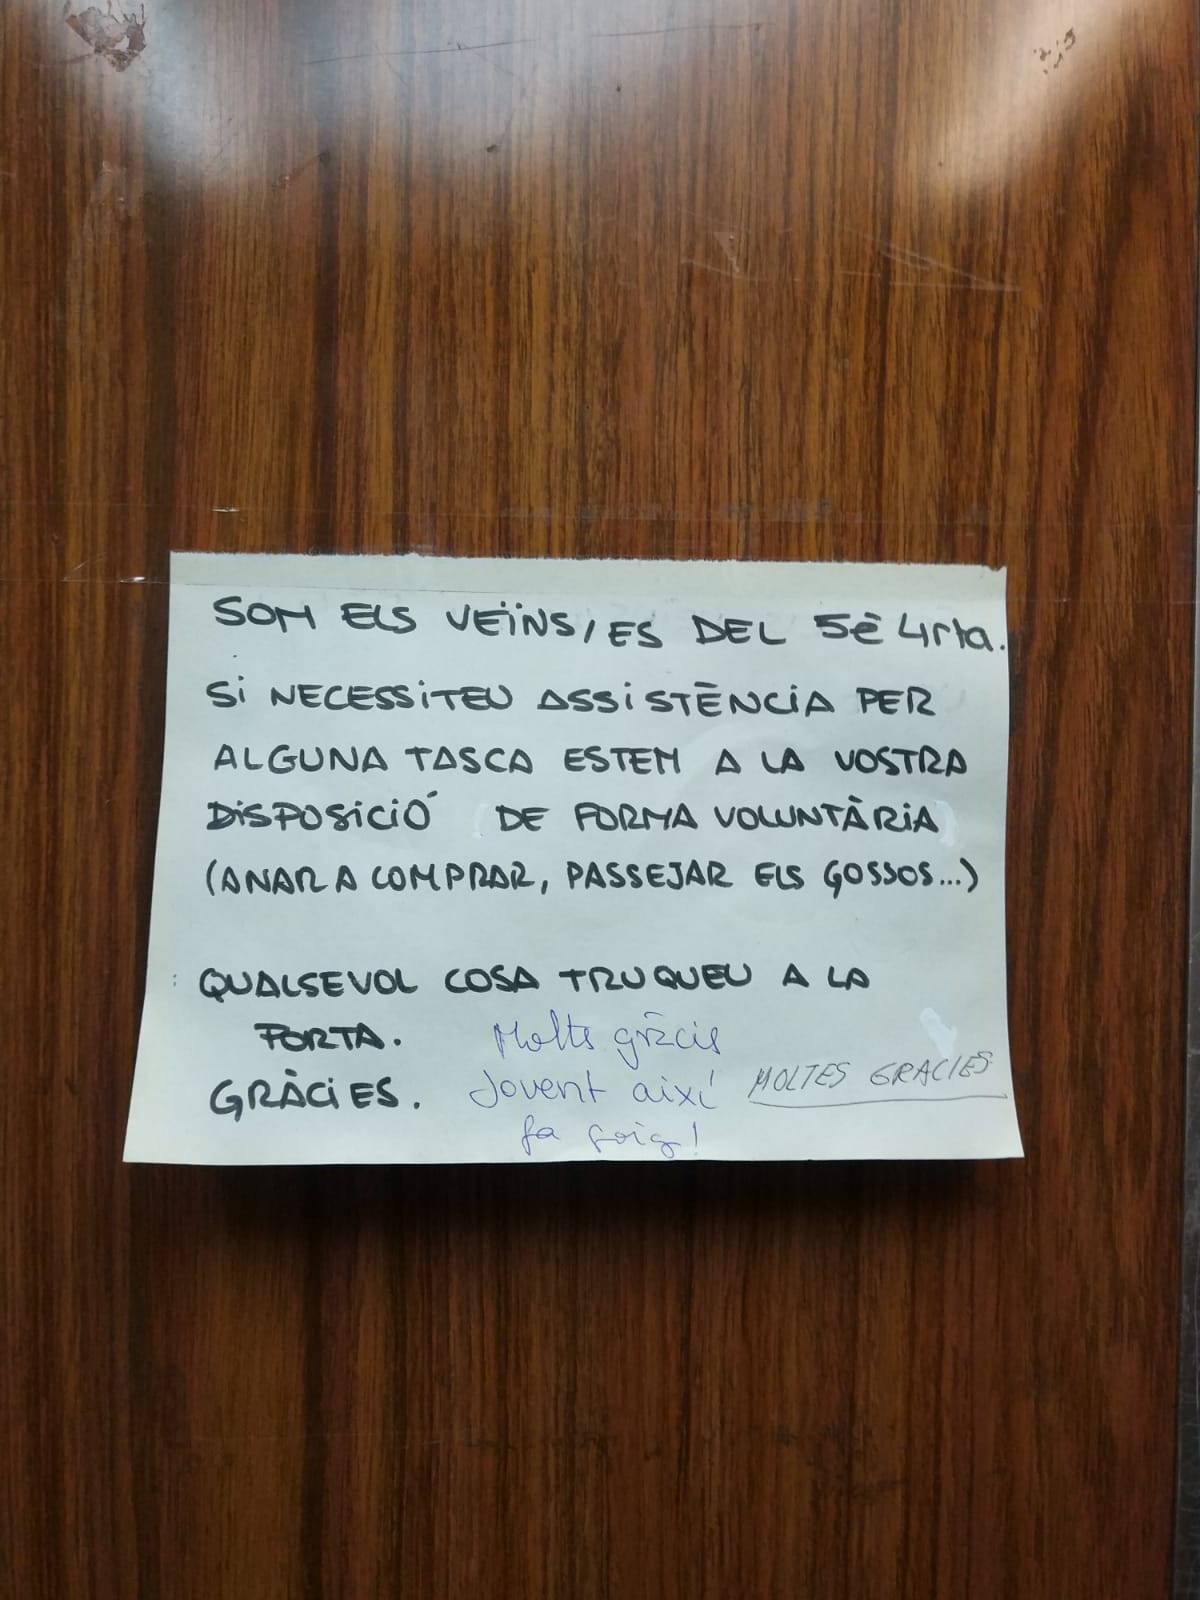 SOM ELS VEÏNS/ES DEL 5è 4rta.
Si NECESSiTEU ASSiSTÈNCiA PER
ALGUNA TASCA ESTEM A LA VOSTRA
DiSPOSiCIÓ DE FORMA VOLUNTÀRiA
(ANAR A COMPRAR, PASSEJAR ELS GOSSOS...)
QUALSEVOL COSA TRUQUEU A LA
PORTA.
Molts gràcis
GRÀCiES.
Jovent així
fa goig!
MOLTES GRACIES